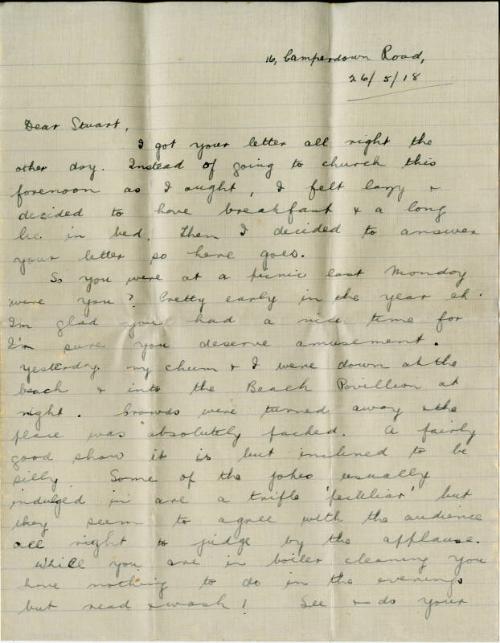 16, Camperdown Road,
26/5/18
Dear Stuart,
I got your letter all right the
other day. Instead of going to church this
forenoon as I ought, I felt lazy &
decided to have breakfast & a long
lie in bed. Then I decided to answer
your letter so here goes.
So you were at a picnic last Monday
were you? Pretty early in the year eh.
I'm glad you had a nice time for
I'm sure you deserve amusement.
Yesterday my chum & I were down at the
beach & into the Beach Pavillion at
night. Crowds were turned away & the
place was absolutely packed. A fairly
good show it is but inclined to be
silly. Some of the jokes usually
indulged in are a trifle 'peculiar' but
they seem to agree with the audience
all right to judge by the applause.
While you are in boiler cleaning you
have nothing to do in the evenings
but read & wash! See & do your